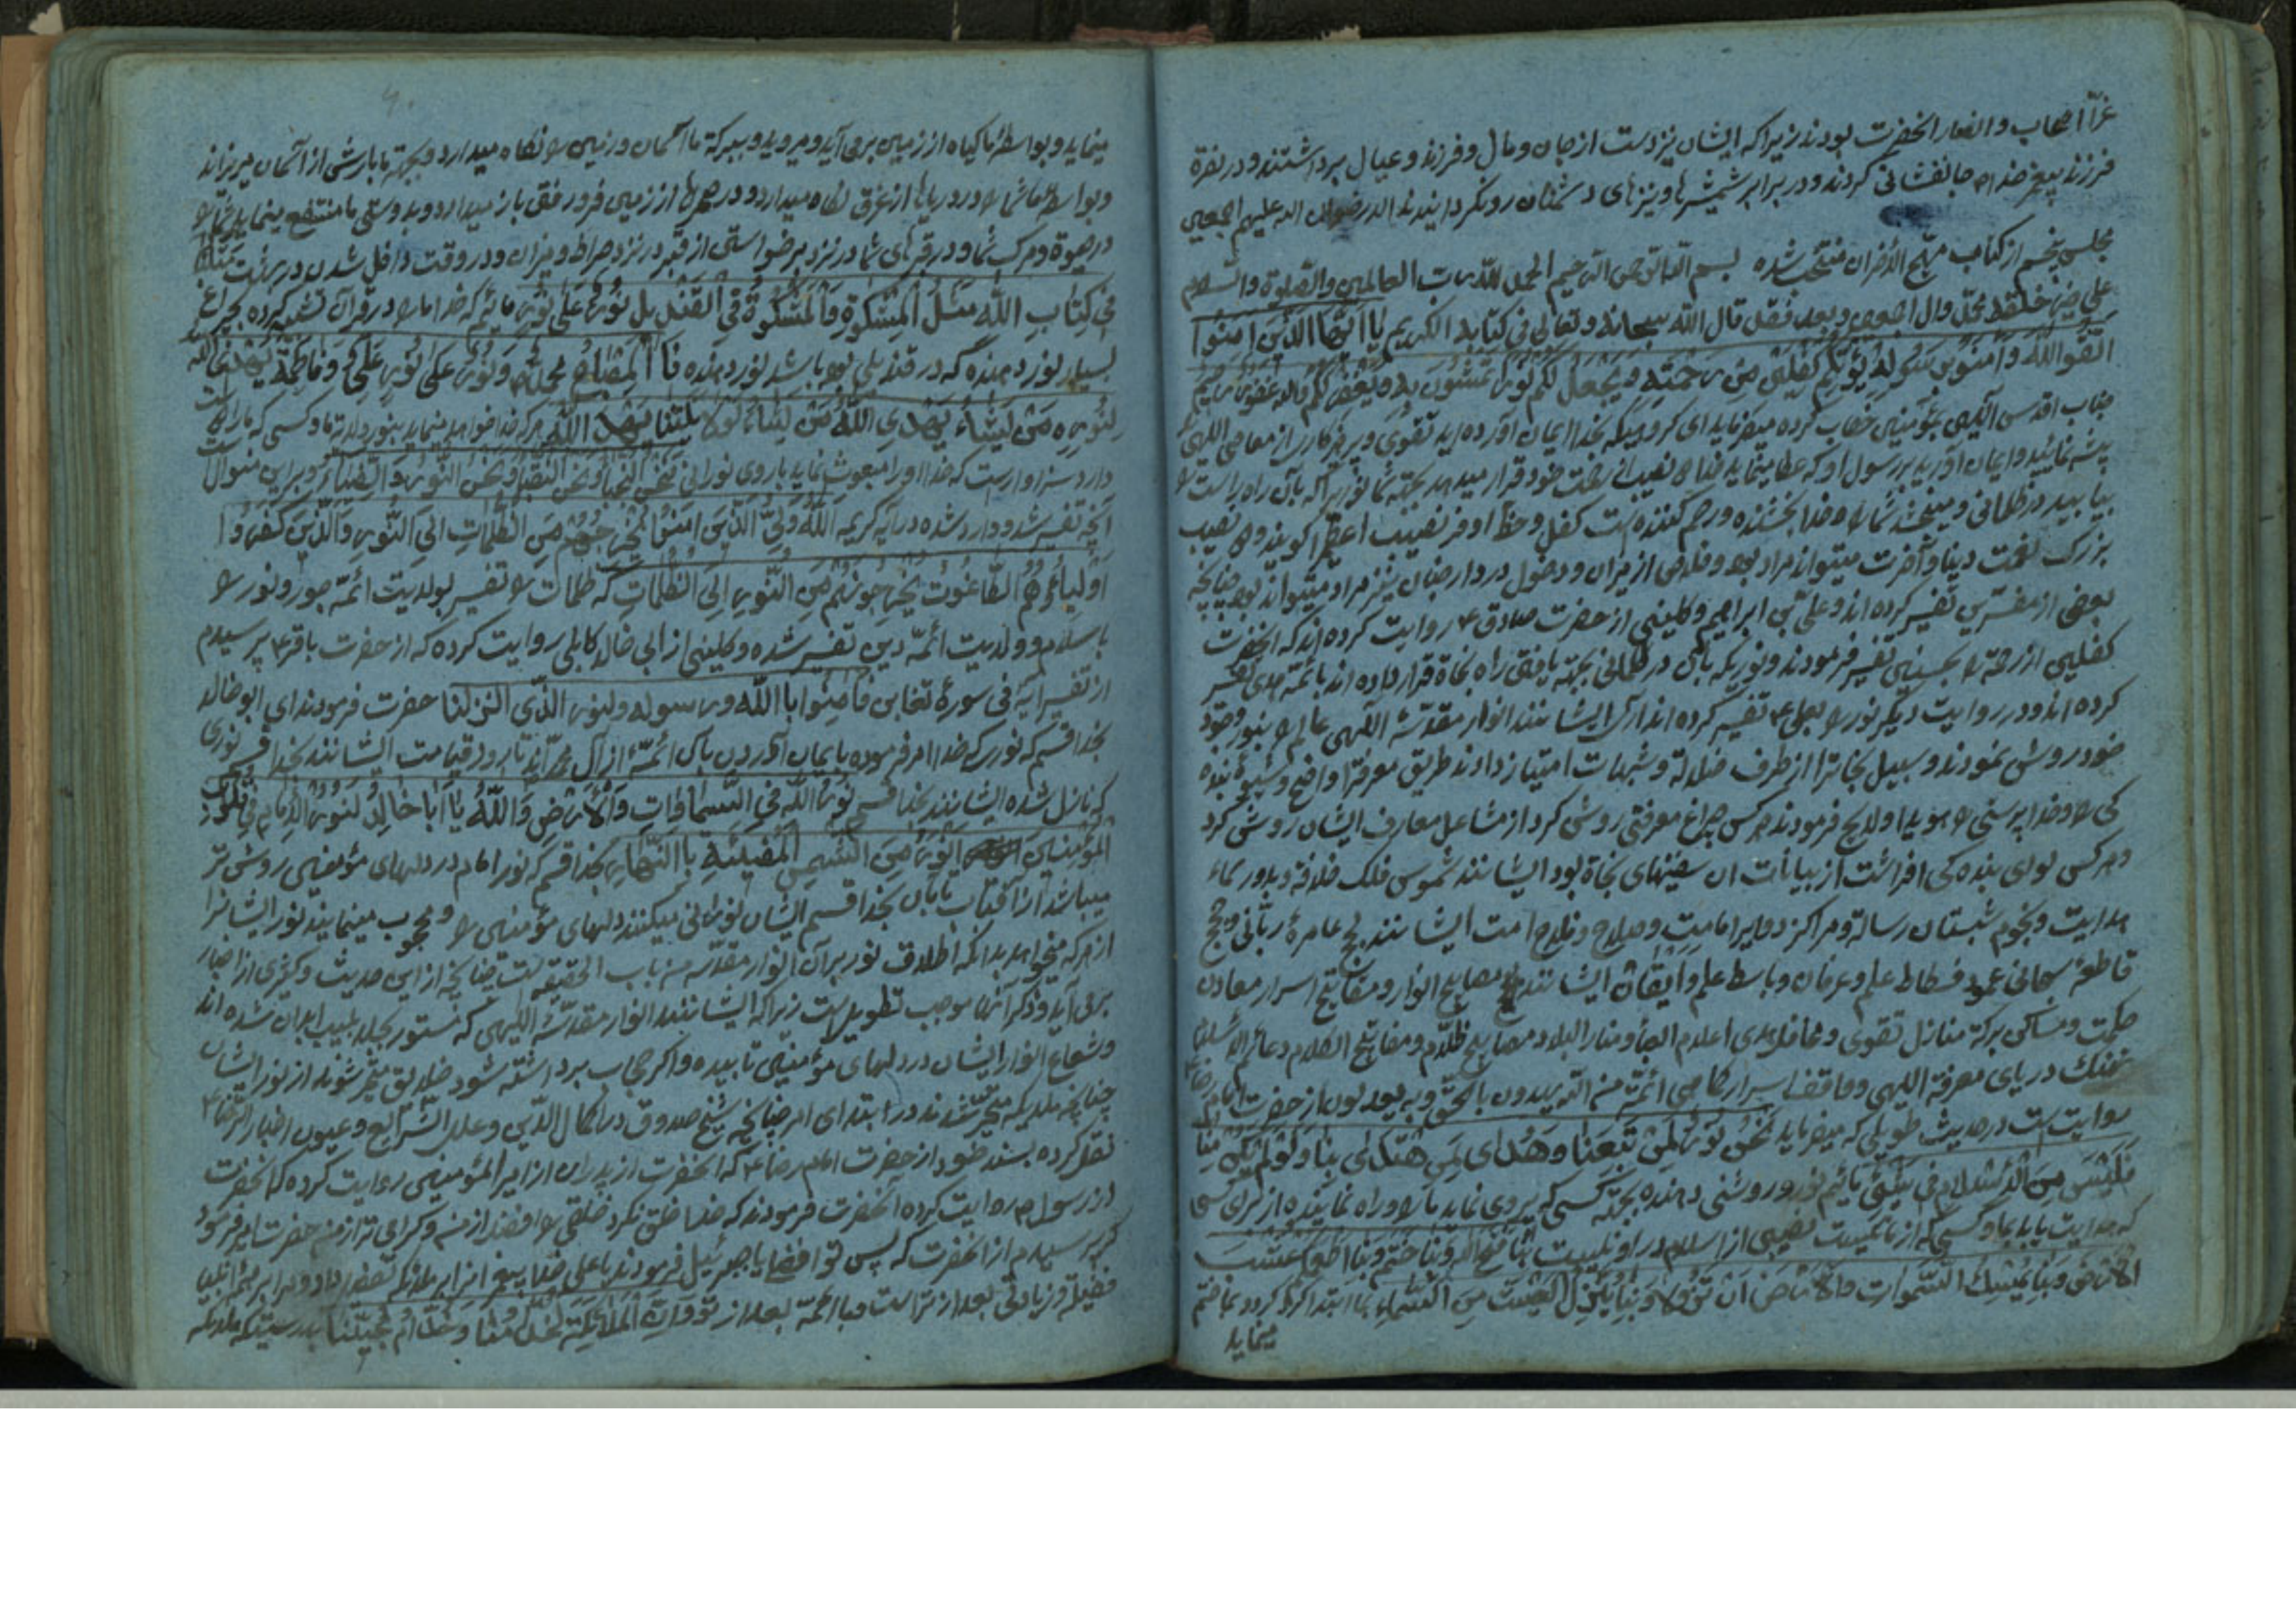 غرّا اصحاب و انصار انحضرت بودند زیرا که ایشان نیز دست از جان و مال و فرزند و عیال برداشتند و در نصرة
فرزند پیغمبر خدا ص جانفشانی کردند و در برابر شمشیرها و نیزهای دشمنان رو نگردانیدند الا رضوان الله علیهم اجمعین
مجلس پنجم از کتاب مهیج الأحزان منتخب شده بسم الله الرحمن الرحیم الحمد لله رب العالمین والصلوة والسلام
علی خیر خلقه محمد وال اجمعین و بعد فقد قال الله سبحانه و تعالی فی کتابه الکریم یا ایها الذین امنوا
اتقوا الله و آمنو برسوله یؤتکم کفلین من رحمته و یجعل لکم نورا تمشون به و یغفر لکم والله غفور رحیم
جناب اقدس آلهی بمؤمنین خطاب کرده میفرماید ای گروهیکه بخدا ایمان آورده اید تقوی و پرهیزکاری از معاصی الهی
پیشه نمائید و ایمان آورید برسول او که عطا مینماید خدا نصیب از رحمت خود و قرار میدهد بجهته شما نوریرا که بآن راه راست را
بیابید در ظلمانی و میبخشد شما را و خدا بخشنده و رحم کننده است کفل و حظ اوفر نصیب اعظم را گویند و نصیب
بزرک نعمت دینا و آخرت میتواند مراد بود و خلاصی از نیران و دخول در دار جنان نیز مراد میتواند بود چنانچه
بعضی از مفسرین تفسیر کرده اند و علی بن ابراهیم و کلینی از حضرت صادق ع روایت کرده اند که انحضرت
کفلین از رحمة را بحسنین تفسیر فرمودند و نوریکه بآن در ظلمانی بجهته یافتن راه نجاة قرار داده اند بائمه هدی تفسیر
کرده اند و در روایت دیگر نور را بعلی ع تفسیر کرده اند آری ایشانند انوار مقدسه الهی عالم را بنور وجود
خود روشن نمودند و سبیل نجاترا از طرف ضلالة و شبهات امتیاز دادند طریق معرفترا واضح و شیوۀ بنده
کی را و خدا پرستی را هویدا و لایح فرمودند هر کس چراغ معرفتی روشن کرد از مشاعل معارف ایشان روشن کرد
و هر کس لوای بنده کی افراشت از بیانات ان سفینهای نجاة بود ایشانند شموس فلک خلافة و بدور سماء
هدایت و نجوم شبستان رسالة و مراکز دوایر امامت و صلاح و فلاح امت ایشانند لجج عامرۀ ربانی و حجج
قاطعۀ سبحانی عمود فسطاط علم و عرفان و باسط علم و ایقان ایشانند مصابیح انوار و مفاتیح اسرار معادن
حکمت و مساکن برکة منازل تقوی و محافل هدی اعلام و منار البلاد مصابیح ظلام و مفاتیح الکلام دعائم الاسلام
نهنك دریای معرفة اللهی و واقف اسرار کماهی ائمة من الله یهدون بالحق و به یعدلون از حضرت امام رضا ع
روایت است در حدیث طویلی که میفرماید نحن نور لمن تبعنا و هدی لمن اهتدی بنا و لو لم یکن منا
فلیس من الاسلام فی شیئ مائیم نور و روشنی دهنده بجهته کسی که پیروی نماید ما را و راه نماینده از برای کسی
که هدایت یابد بما و کسی که از ما نیست نصیبی از اسلام در او نیست بنا فتح الله و بنا ختم و بنا اطعمکم عشب
الارض و بنا یمسك السموات والارض ان تزولا و بنا ینزل الغیث من السماء بما ابتدا کرد و بما ختم
مینماید
مینماید و بواسطۀ ما گیاه از زمین برمی آید و میروید و ببرکة ما آسمان و زمین را نگاه میدارد و بجهته ما بارش از آسمان میریزاند
و بواسطۀ ما شما را در دریاها از غرق نگاه میدارد و در صحرها از زمین فرو رفتن باز میدارد و بدوستی ما منتفع مینماید شما را
در حیوة و مرک شما و در قبرهای شما در نزد برخواستن از قبر در نزد صراط و میزان و در وقت داخل شدن در بهشت مثلنا
فی کتاب الله مثل المشکوة والمشکوة فی القندیل نور علی نور مائیم که خدا ما را در قرآن تشبیه کرده بچراغ
بسیار نور دهنده که در قندیلی بوده باشد نور دهنده فا المصباح محمد ص و نور علی نور علی و فاطمة یهدی الله
لنوره من یشاء یهدی الله من یشاء لولایتنا یهد الله هر که خدا خواهد مینماید بنور ولایة ما و کسی که ما را دوست
دارد سزاوار است که خدا او را مبعوث نماید با روی نورانی نحن النجباء و نحن النور و الضیاء و برین منوال است
آنچه تفسیر شد و وارد شده در آیه کریمه الله ولی الذین امنوا یخرجهم من الظلمات الی النور والذین کفروا
اولیاءهم الطاغوت یخرجونهم من النور الی الظلمات که ظلمات را تفسیر بولایت ائمه جور و نور را
باسلام و ولایت ائمه دین تفسیر شده و کلینی از ابی خالد کابلی روایت کرده که از حضرت باقر ع پرسیدم
از تفسیر ایه فی سورۀ تغابن فامنوا باالله و رسوله والنور الذی انزلنا حضرت فرمودند ای ابو خالد
بخدا قسم که نوری که خدا امر فرموده بایمان آوردن بآن ائمه از آل محمد اند تا بروز قیامت ایشانند بخدا قسم نوری
که نازل شده ایشانند بخدا قسم نور الله فی السماوات والارض والله یا ابا خالد لنور الامام فی قلوب
المؤمنین انور من الشمس المضیئة باالنهار بخدا قسم که نور امام در دلهای مؤمنین روشن تر
میباشد از آفتاب تابان بخدا قسم ایشان نورانی میکنند دلهای مؤمنین را و محجوب مینمایند نور ایشانرا
از هر که میخواهد بدانکه اطلاق نور بر آن انوار مقدسه من باب الحقیقه است چنانچه از این حدیث و غیری از اخبار
برمی آید و ذکر آنها موجب تطویل است زیرا که ایشانند انوار مقدسۀ اللهی که مستور بجلابیب ابدان شده اند
و شعاع انوار ایشان در دلهای مؤمنین تابیده و اگر حجاب برداشته شود خلایق متحیر شوند از نور ایشان
چنانچه ملایکه متحیر شدند در ابتدای امر چنانچه شیخ صدوق در اکمال الدین و علل الشرایع و عیون اخبار الرضا ع
نقل کرده بسند خود از حضرت امام رضا ع که انحضرت از پدران از امیر المؤمنین روایت کرده که انحضرت
از رسول ص روایت کرده آنحضرت فرمودند که خدا خلق نکرد خلقی را افضل از من و گرامی تر از من حضرت امیر فرمود
که پرسیدم از انحضرت که پس تو افضل یا جبرئیل فرمودند یا علی خدا پیغمبرانرا بر ملایکه تفضیل داد و مرا بر همۀ انبیا
فضیلة و زیادتی بعد از تراست و با ائمه بعد از تو و ان الملائکة لخدامنا و خدام محبینا بدرستیکه ملایکه